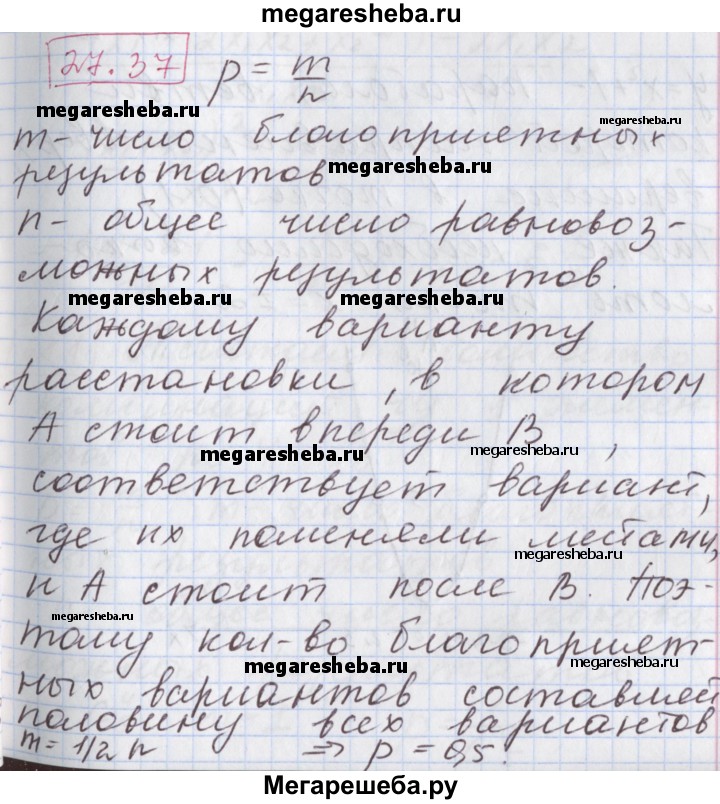 megaresheba.ru
27.37 p = m/n
megaresheba.ru
m - число благоприятных
megaresheba.ru
результатов
n - общее число равновоз-
можных результатов.
megaresheba.ru megaresheba.ru
Каждому варианту
расстановки, в котором
А стоит впереди В,
megaresheba.ru megaresheba.ru
соответствует вариант,
где их поменяли местами,
megaresheba.ru
и А стоит после В. Поэ-
megaresheba.ru
тому кол-во благоприят-
megaresheba.ru megaresheba.ru
ных вариантов составляет
половину всех вариантов
m = 1/2 n ⇒ p = 0,5.
Мегарешеба.ру